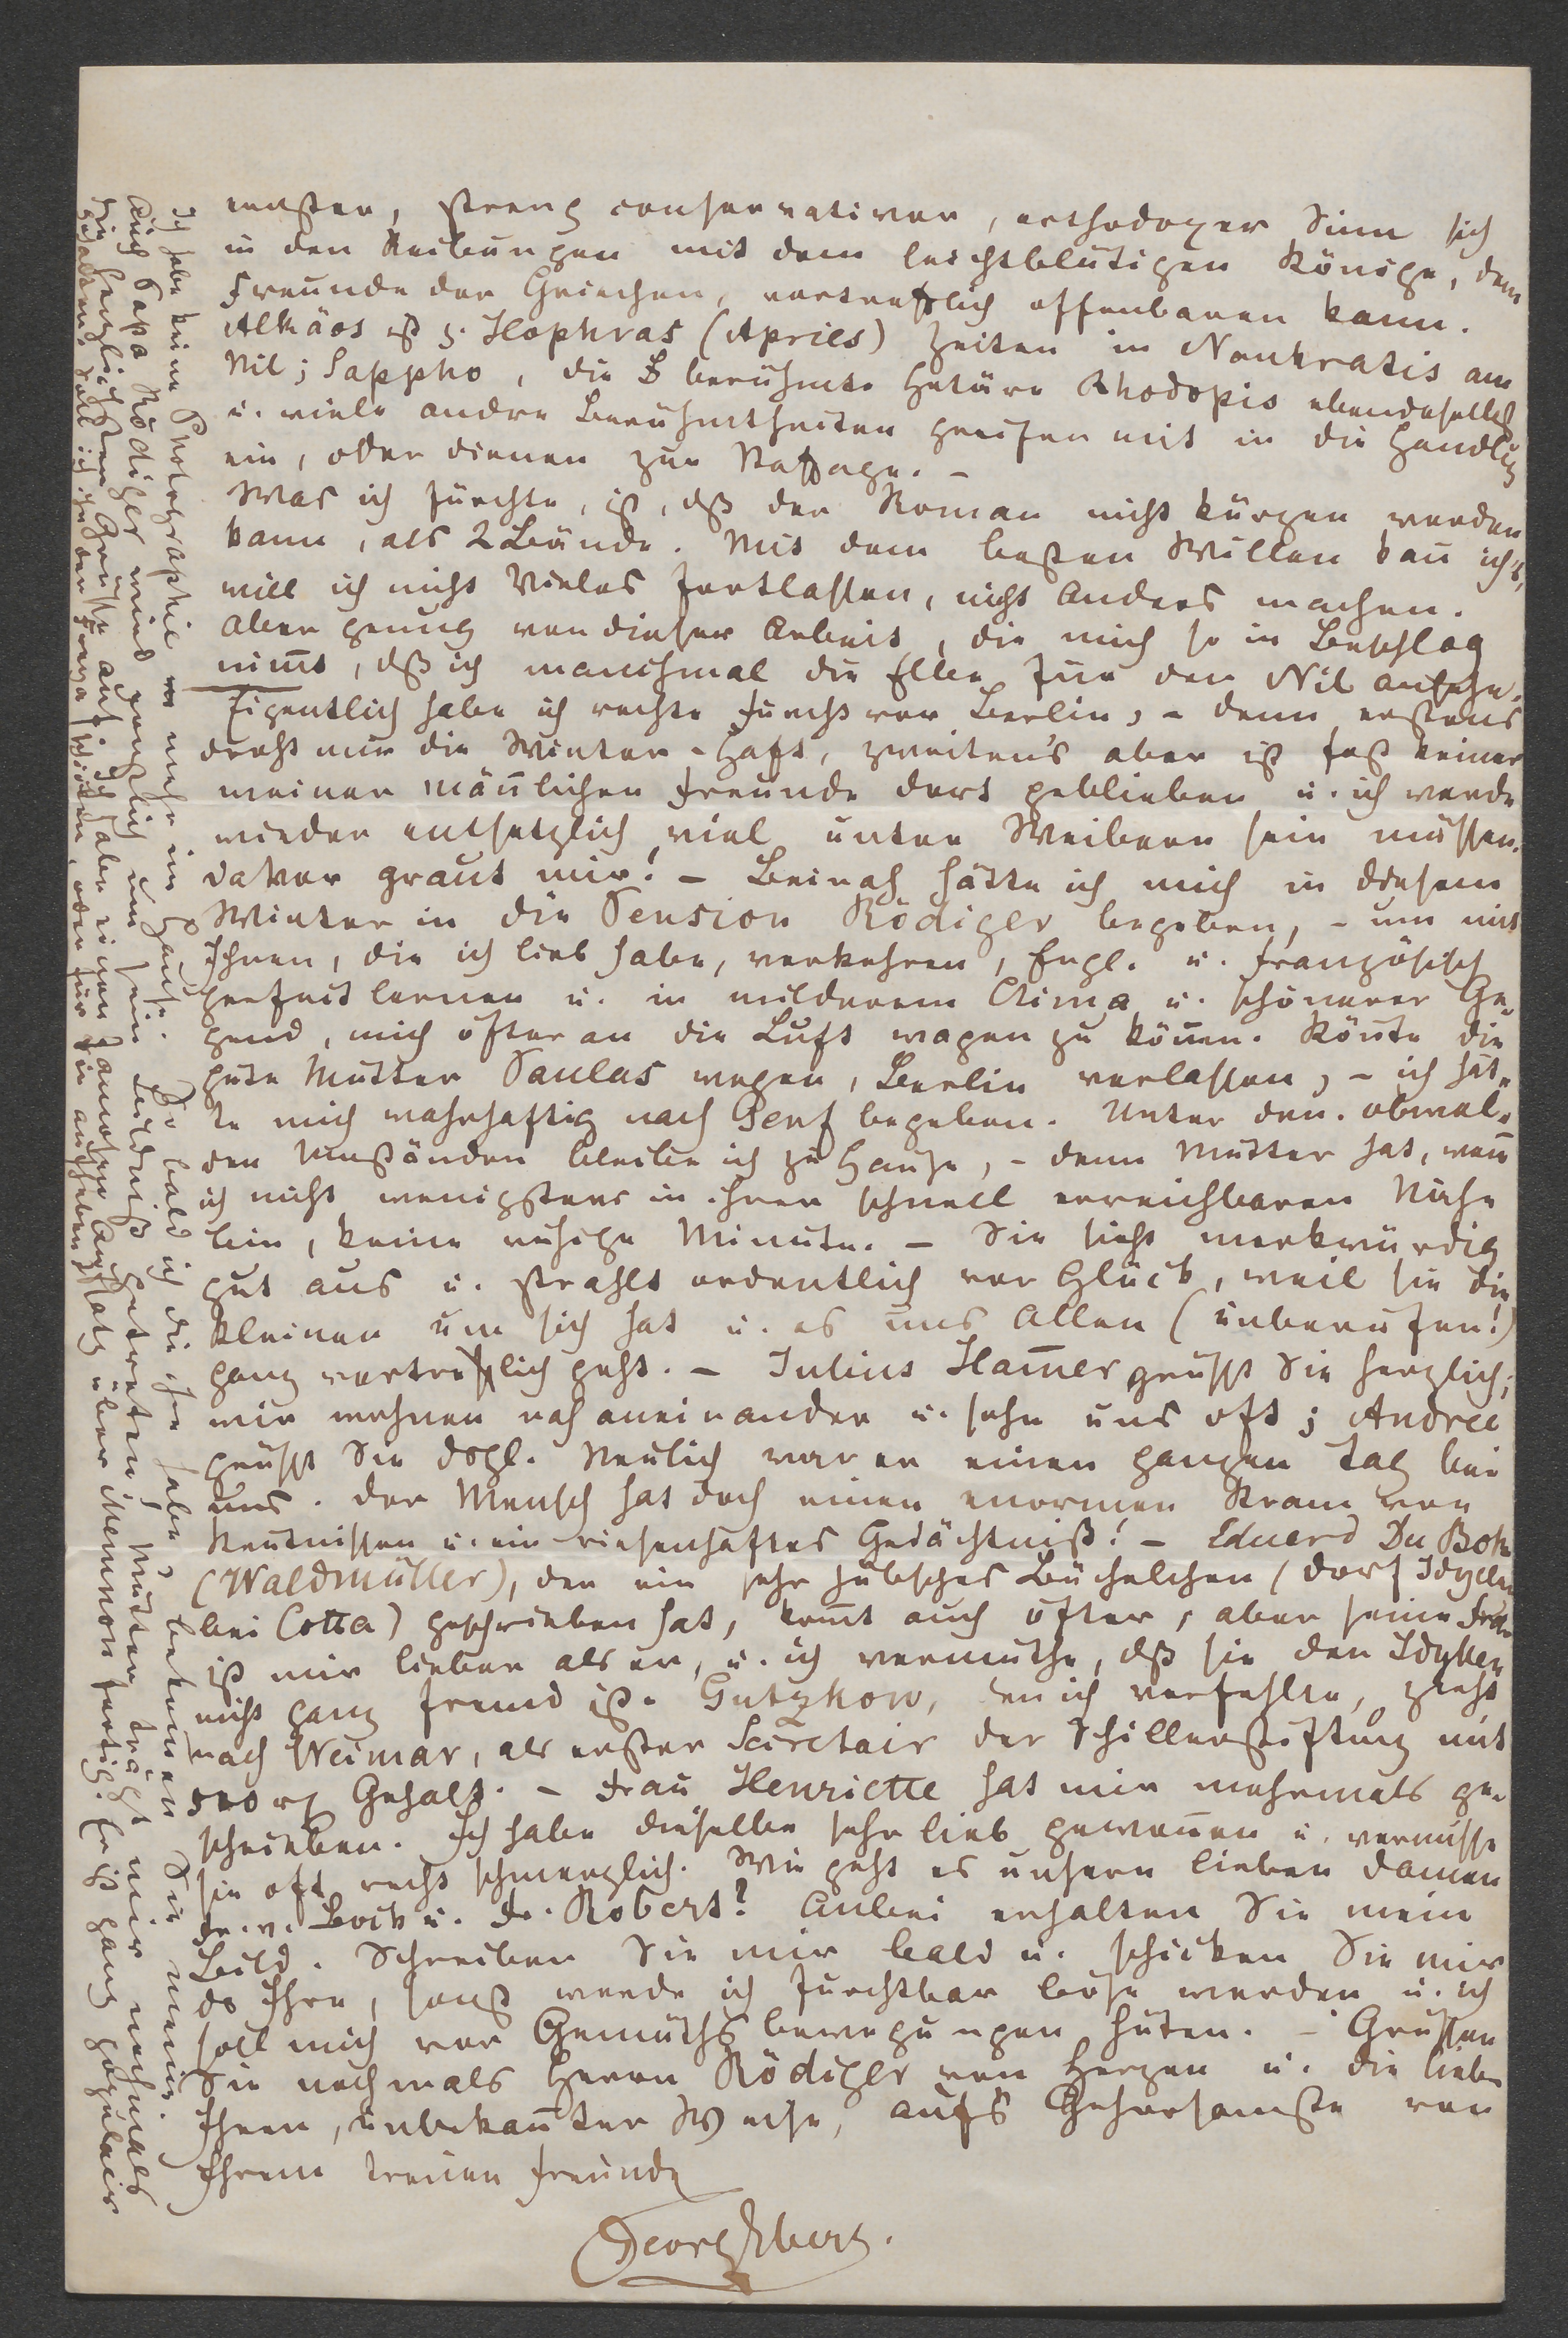 ernster, streng conservativer, orthodoxer Sinn sich
in den Reibungen mit dem leichtblütigen Könige, dem
Freunde der Griechen, vortrefflich offenbaren kann.
Alkäos ist z. Hophras (Apries) Zeiten in Naukratis am
Nil; Sappho, die berühmte Hetäre Rhodopis ebendaselbst
u. viele andre Berühmtheiten greifen mit in die Handlung
ein, oder dienen zur Staffage. –
Was ich fürchte, ist, dß der Roman nicht kürzer werden
kann, als 2 Bände. Mit dem besten Willen kan̅ ich's,
will ich nicht Vieles fortlassen, nicht anders machen.
Aber genug von dieser Arbeit, die mich so in Beschlag
nim̅t, dß ich manchmal die Elbe für den Nil ansehe.
Eigentlich habe ich rechte Furcht vor Berlin, – denn erstens
droht mir die Winter-Haft, zweitens aber ist fast keiner
meiner män̅lichen Freunde dort geblieben u. ich werde
wieder entsetzlich viel unter Weibern sein müssen.
Davor graut mir! – Beinah hätte ich mich in diesem
Winter in die Pension Rödiger begeben, – um mit
Ihnen, die ich lieb habe, verkehren, Engl. u. Französisch
gescheit lernen u. in milderem Clima u. schönerer Ge-
gend, mich öfter an die Luft wagen zu kön̅en. Kön̅te die
gute Mutter Paulas wegen, Berlin verlassen, – ich hät-
te mich wahrhaftig nach Genf begeben. Unter den obwal-
den Umständen bleibe ich zu Hause, – denn Mutter hat, wen̅
ich nicht wenigstens in ihrer schnell erreichbaren Nähe
bin, keine ruhige Minute. – Sie sieht merkwürdig
gut aus u. strahlt ordentlich vor Glück, weil sie die
Kleinen um sich hat u. es uns Allen (unberufen!)
ganz vortrefflich geht. – Julius Ham̅er grüsst Sie herzlich;
wir wohnen nah aneinander u. sehn uns oft; Andree
grüsst Sie dsgl. Neulich war er einen ganzen Tag bei
uns. Der Mensch hat doch einen enormen Kram von
Kentnissen u. ein riesenhaftes Gedächtniß! – Eduard Du Bok
(Waldmüller), der ein sehr hübsches Büchelchen (Dorf Idyllen
bei Cotta) geschrieben hat, kom̅t auch öfter, aber seine Frau
ist mir lieber als er, u. ich vermuthe, dß sie den Idyllen
nicht ganz fremd ist. Gutzkow, den ich verfehlte, zieht
nach Weimar, als erster Secretair der Schillerstiftung mit
500 rt Gehalt. – Frau Henriette hat mir mehrmals ge-
schrieben. Ich habe dieselbe sehr lieb gewon̅en u. vermisse
sie oft recht schmerzlich. Wie geht es unsern lieben Damen
Fr. v. Bock u. Fr. Robert? Anbei erhalten Sie mein
Bild. Schreiben Sie mir bald u. schicken Sie mir
ds Ihre, sonst werde ich furchtbar böse werden u. ich
soll mich vor Gemüthsbewegungen hüten. – Grüssen
Sie nochmals Herrn Rödiger von Herzen u. die liebe
Ihren, unbekan̅ter Weise, aufs Gehorsamste von
Ihrem treuen Freunde
Georg Ebers.
Ich habe keine Photographie mehr im Hause. So bald ich die habe, bekom̅en Sie meine.
Auch Papa Rödiger wird um sein Bildniß gebeten. Mutter trägt mir nochmals
die herzlichsten Grüsse auf. Ich habe einen Aufsatz über Memnon fertig. Er ist ganz populair
gehalten. Soll ich ihn schicken, oder für Sie aufheben?